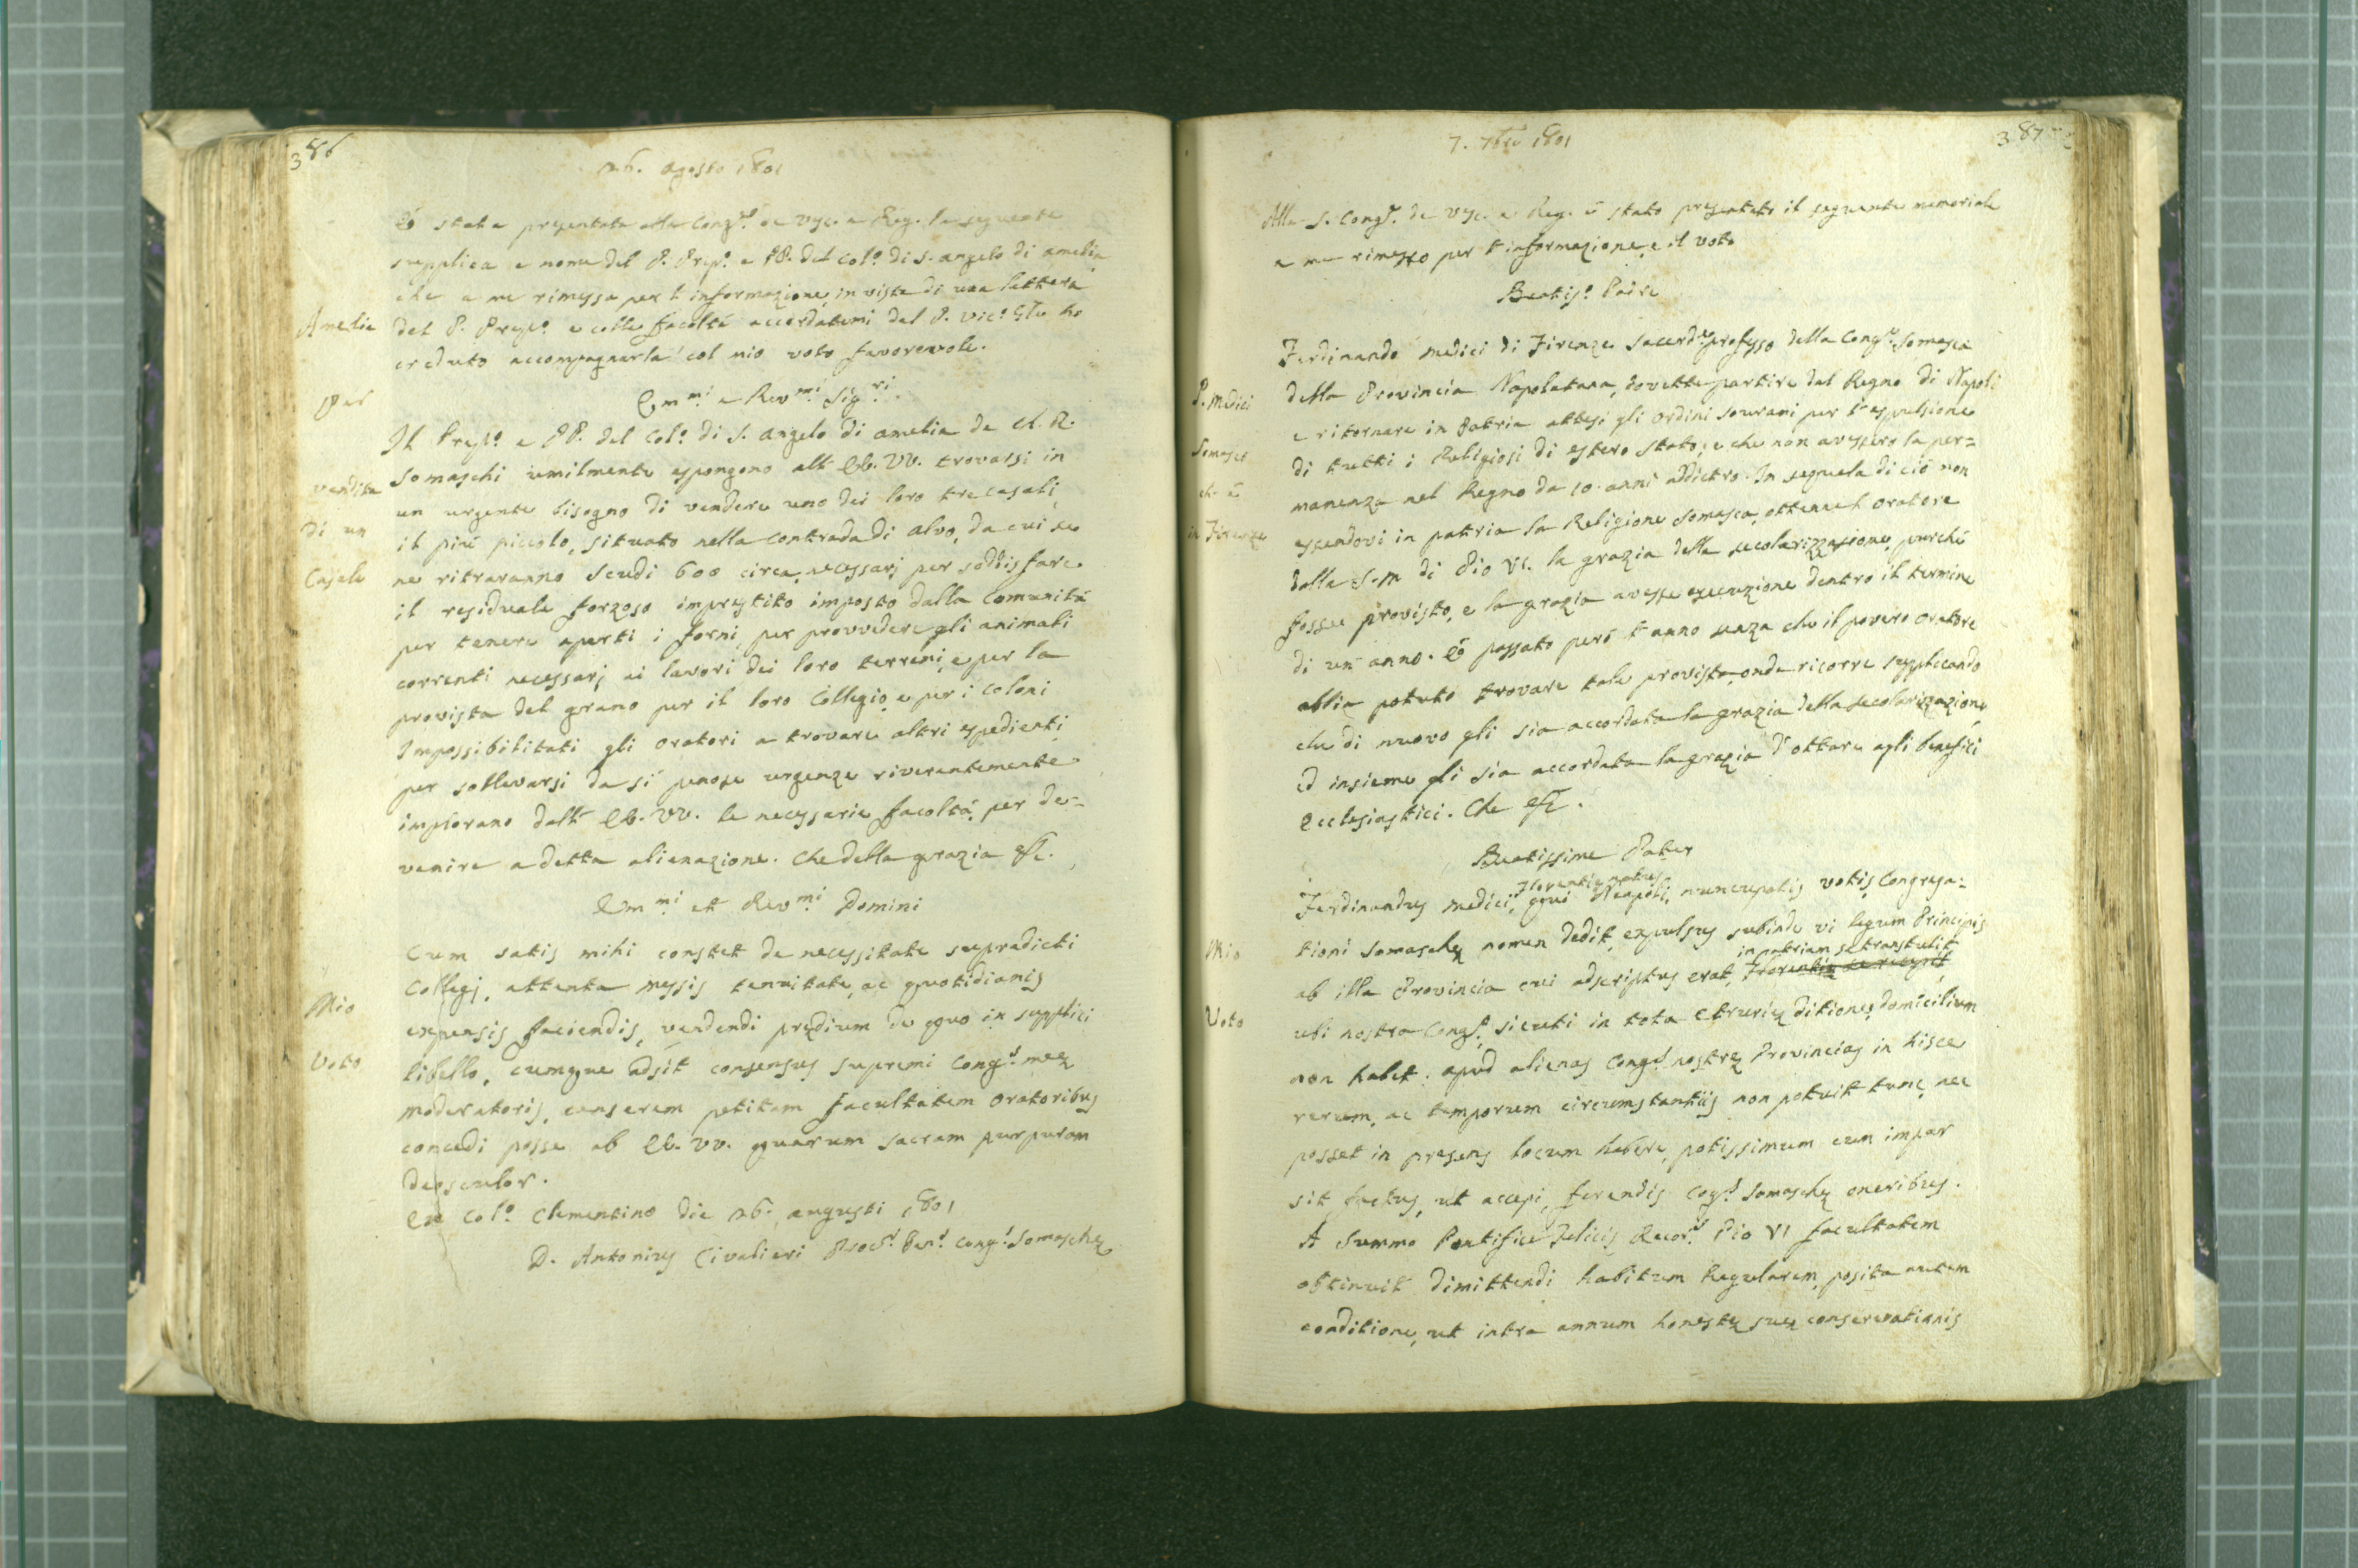 386
26. agosto 1801
È stata presentata alla Cong.e de Vsc. e Reg. la seguente
supplica a nome del P. Prep.o e PP. del Col.o di S. Angelo di Amelia
che a me rimessa per l'informazione, in vista di una lettera
Amelia
del P. Prep.o e colle facoltà accordatemi dal P. Vic.o Gle ho
creduto accompagnarla col mio voto favorevole.
Emmi e Revmi Sigri.
Per
Il Prep.o e PP. del Col.o di S. Angelo di Amelia de Ch. R.
Somaschi umilmente espongono all' EE. VV. trovarsi in
vendita
un urgente bisogno di vendere uno dei loro tre casali,
di un
il più piccolo, situato nella contrada di alvo, da cui se
Casale
ne ritraranno scudi 600 circa, necessarj per soddisfare
il residuale forzoso imprestito imposto dalla Comunità
per tenere aperti i forni, per provvedere gli animali
correnti necessarj ai lavori dei loro terreni, e per la
provista del grano per il loro Collegio, e per i coloni
Impossibilitati gli oratori a trovare altri espedienti
per sollevarsi da sì penose urgenze riverentemente
implorano dall' EE. VV. le necessarie facoltà, per de=
venire a detta alienazione. Che della grazia &c.
Emmi et Revmi Domini
Cum satis mihi constet de necessitate supradicti
Collegj, attenta messis tenuitate, ac quotidianis
Mio
expensis faciendis, vendendi prędium de quo in supplici
Voto
libello, cumque adsit consensus supremi Cong.s meę
moderatoris, censerem petitam facultatem oratoribus
concedi posse ab EE. VV. quarum sacram purpuram
deosculor.
Ex Col.o Clementino die 26. augusti 1801
D. Antonius Civalieri Proc.r Gen.s Cong.s Somaschę
387
7. 7bre 1801
Alla S. Cong.e de Vsc. e Reg. è stato presentato il seguente memoriale
a me rimesso per l'informazione, e il voto
Beatis.o Padre
Ferdinando Medici di Firenze Sacerd.e professo della Cong.e Somasca
P. Medici
della Provincia Napoletana, dovette partire dal Regno di Napoli
e ritornare in Patria attesi gli ordini sourani per l'espulsione
Somasco
di tutti i Religiosi di estero stato; e che non avessero la per=
che è
manenza nel Regno da 10. anni addietro. In seguela di ciò non
in Firenze
essendovi in patria la Religione Somasca, ottenne l'oratore
dalla S. M. di Pio VI. la grazia della secolarizzazione, purché
fosse provisto, e la grazia avesse esecuzione dentro il termine
di un anno. È passato però l'anno senza che il povero oratore
abbia potuto trovare tale provista, onde ricorre supplicando
che di nuovo gli sia accordata la grazia della secolarizzazione,
ed insieme gli sia accordata la grazia d'ottare agli benefici
Ecclesiastici. Che &c.
Beatissime Pater
Florentię natus
Ferdinandus Medici, qui Neapoli, nuncupatis votis Congrega=
Mio
tioni Somaschę nomen dedit, expulsus subinde vi legum Principis
in patriam se transtulit
ab illa Provincia cui adscriptus erat, Florentię se recepit
Voto
ubi nostra Cong.o, sicuti in tota Etrurię ditione, domicilium
non habet. apud alienas Cong.s nostrę Provincias in hisce
rerum, ac temporum circumstantiis non potuit tunc, nec
posset in presens locum habere, potissimum cum impar
sit factus, ut accepi, ferendis Cog.s Somaschę oneribus.
A Summo Pontifice Felicis Recor.s Pio VI facultatem
obtinuit dimittendi habitum Regularem, posita autem
conditione, ut intra annum honestę suę conservationis